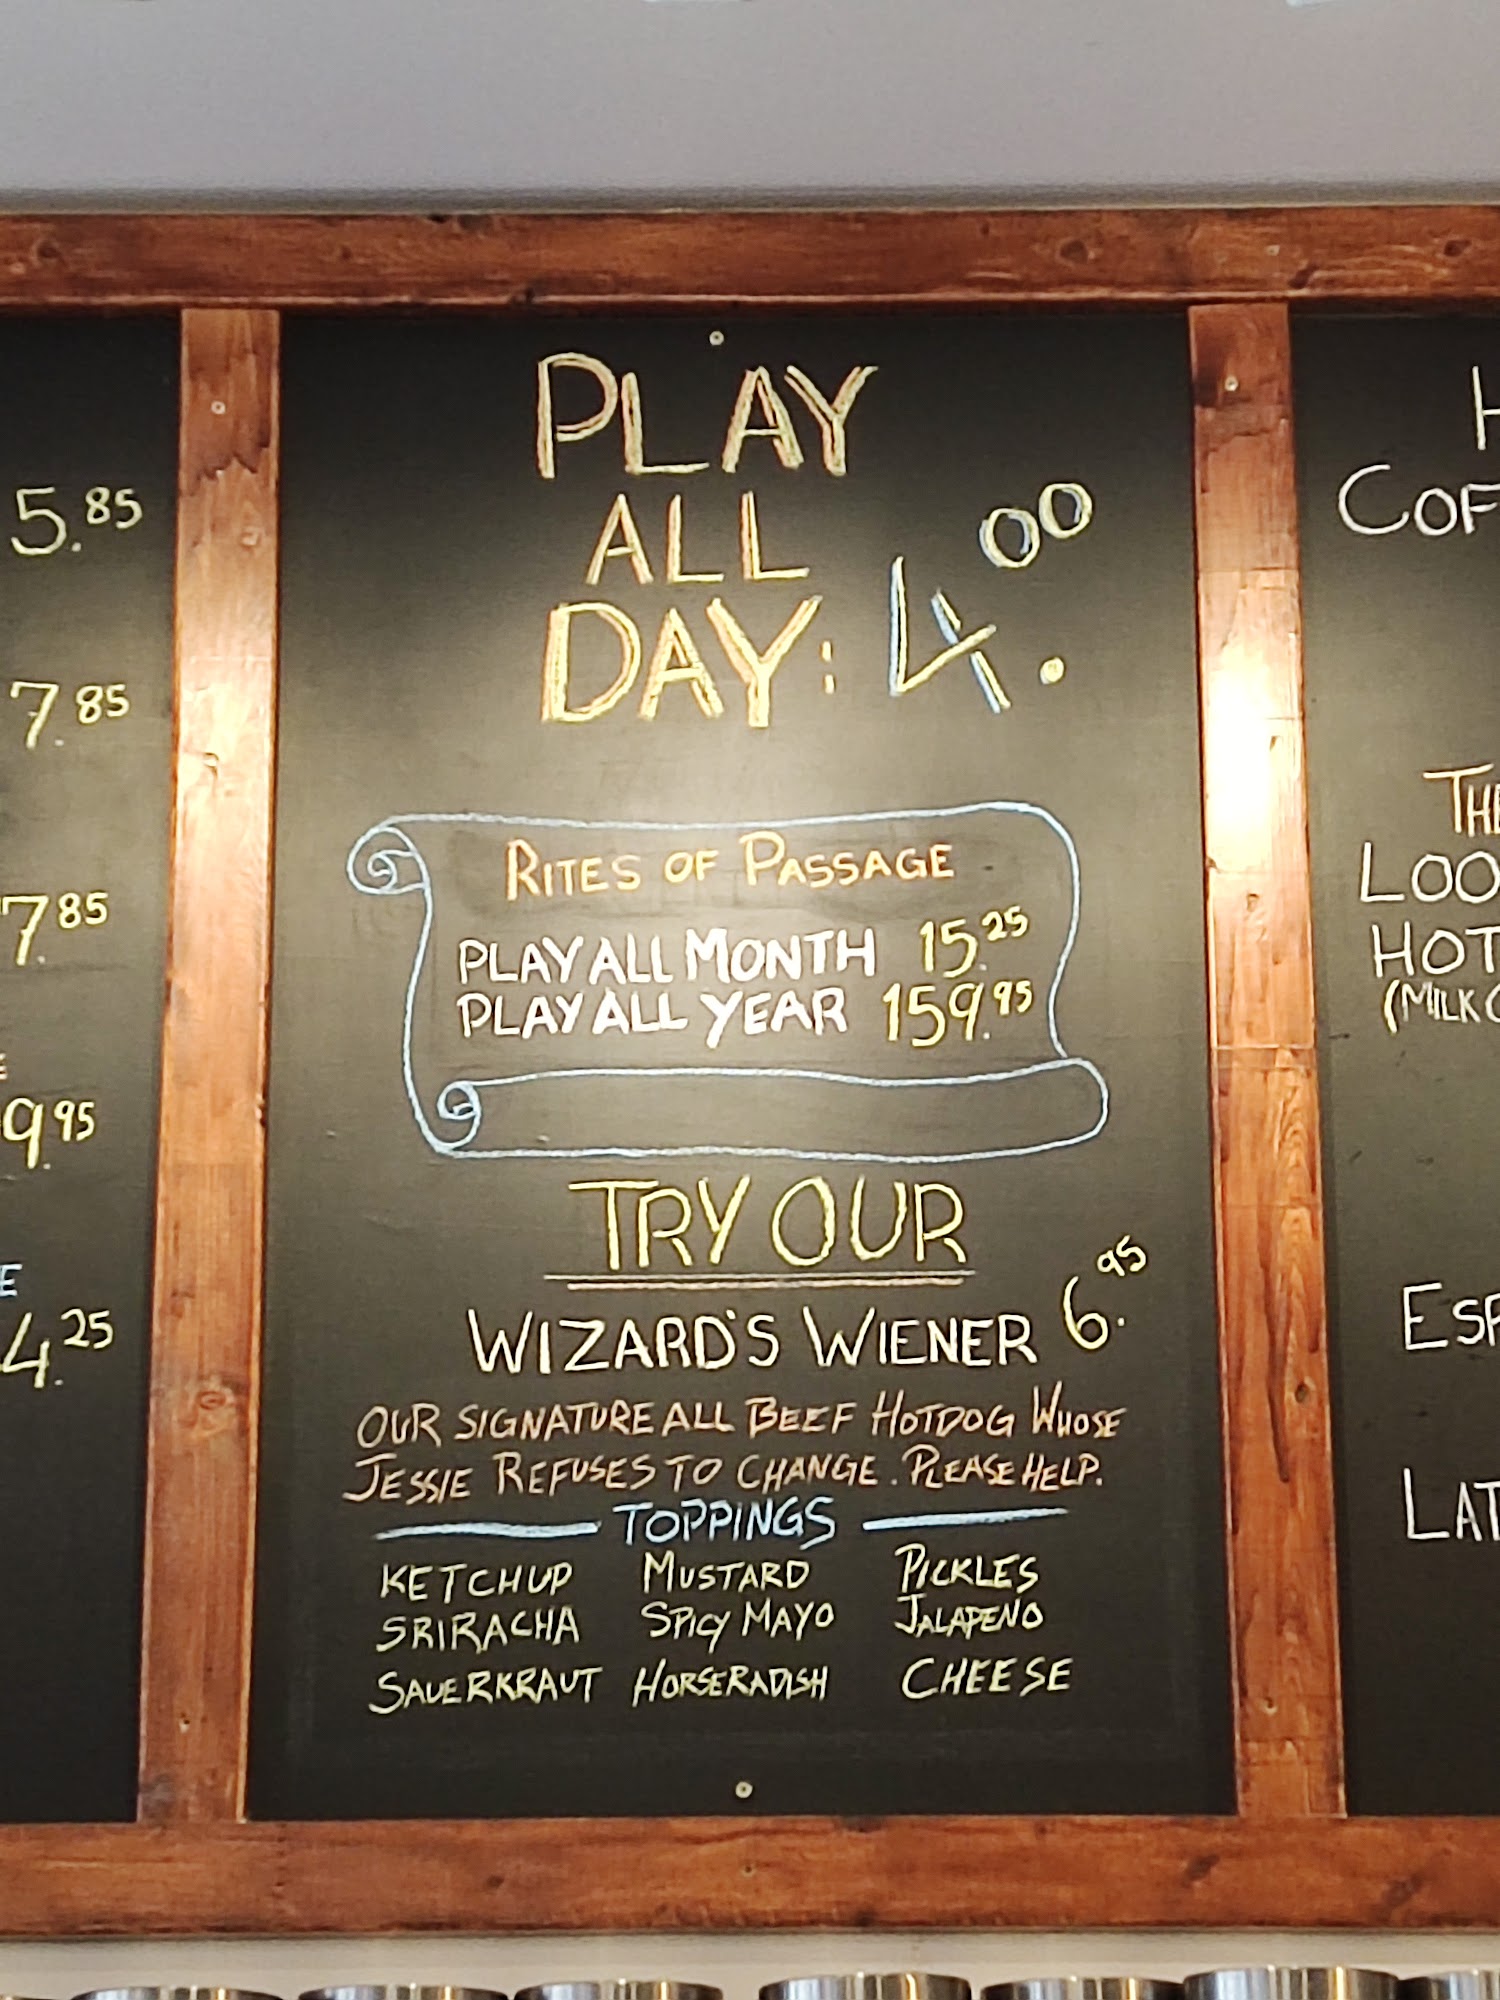 5.85
7.85
7.85
9.95
4.25
PLAY
ALL
DAY: 4.00
RITES OF PASSAGE
PLAY ALL MONTH 15.25
PLAY ALL YEAR 159.95
TRY OUR
WIZARD'S WIENER 6.95
OUR SIGNATURE ALL BEEF HOTDOG WHOSE
JESSIE REFUSES TO CHANGE. PLEASE HELP.
TOPPINGS
KETCHUP MUSTARD PICKLES
SRIRACHA SPICY MAYO JALAPENO
SAUERKRAUT HORSERADISH CHEESE
HOT
(MILK